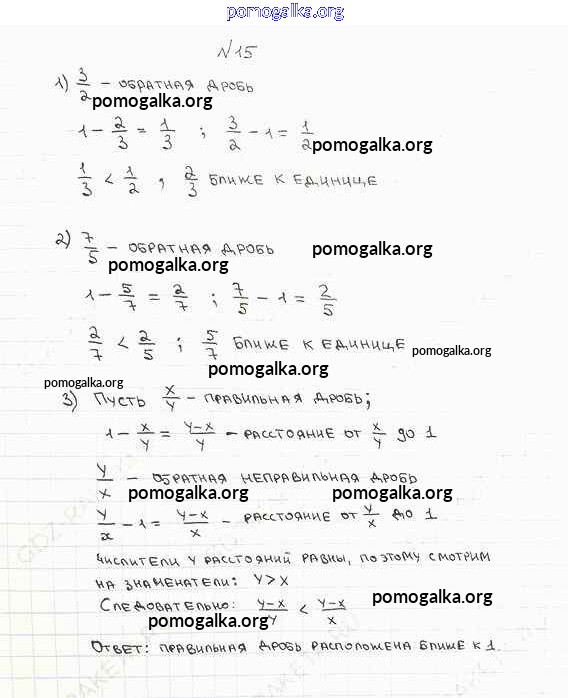 pomogalka.org
N15
1) 3/2 – обратная дробь
pomogalka.org
1 - 2/3 = 1/3 ; 3/2 - 1 = 1/2
pomogalka.org
1/3 < 1/2 , 2/3 ближе к единице
2) 7/5 – обратная дробь
pomogalka.org
pomogalka.org
1 - 5/7 = 2/7 ; 7/5 - 1 = 2/5
2/7 < 2/5 ; 5/7 ближе к единице
pomogalka.org
pomogalka.org
pomogalka.org
3) Пусть x/y – правильная дробь;
1 - x/y = y-x/y – расстояние от x/y до 1
y/x – обратная неправильная дробь
pomogalka.org pomogalka.org
y/x - 1 = y-x/x – расстояние от y/x до 1
числители у расстояний равны, поэтому смотрим
на знаменатели: y>x
Следовательно: y-x/y < y-x/x
pomogalka.org
pomogalka.org
Ответ: правильная дробь расположена ближе к 1.